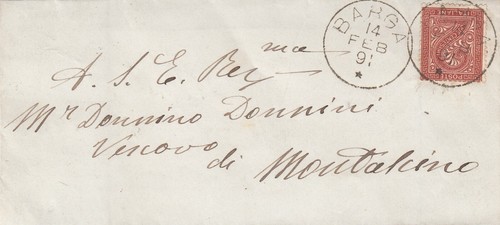 BARGA
14
FEB
91
A. S. E. Rev ma
Mr Donnino Donnini
Vescovo
di Montalcino